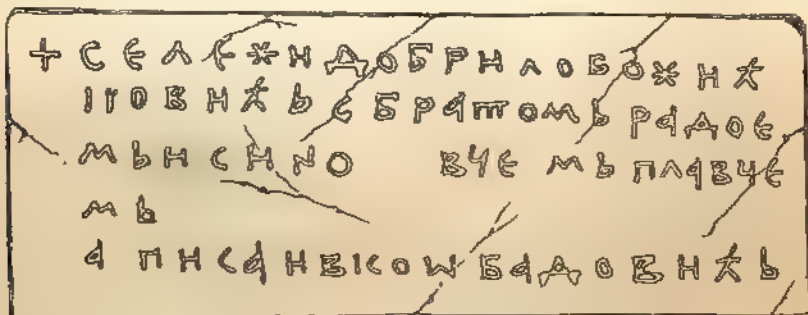 + СЕ ЛЕЖИ ДОБРИЛО ВОЖИЋ
КОВИЋЬ С БРАТОМЬ РАДОЕ
МЬ И СИНО ВЧЕ МЬ ПЛАВЧЕ
МЬ
А ПИСА ИВКО ѠБАДОВИЋЬ